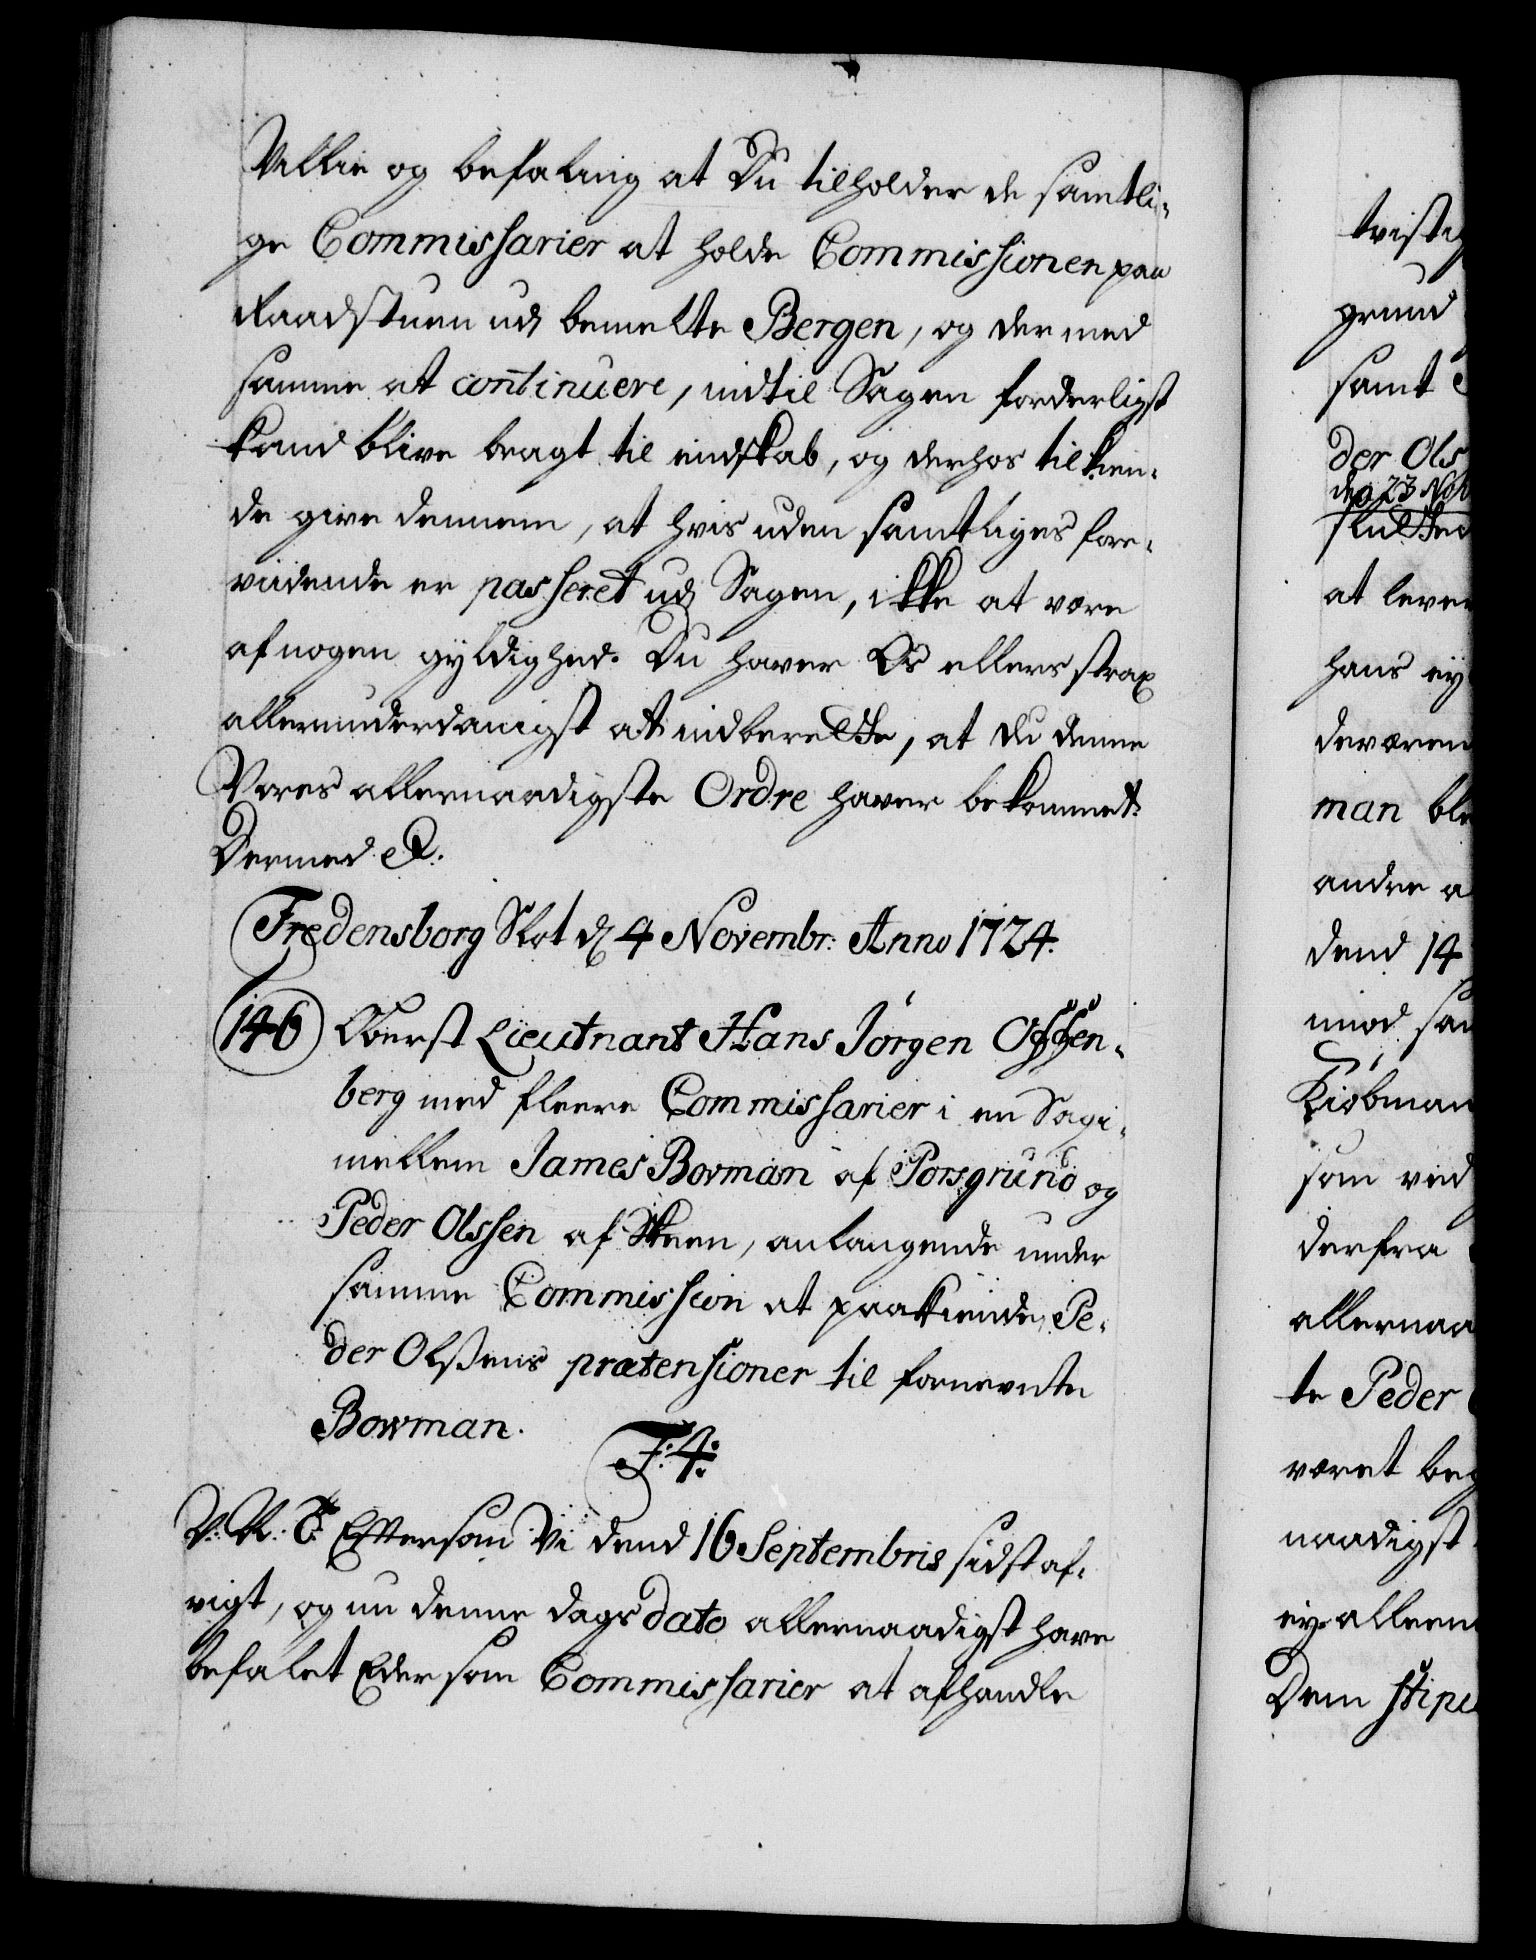 Villie og befaling at Du tilholder de samtli-
ge Commissarier at holde Commissionen paa
Raadstuen udj bemelte Bergen, og der med
samme at continuere, indtil Sagen forderligst
kand blive bragt til endskab, og derhos tilkien-
de give dennem, at hvis uden samtliges for-
viidende er passeret udj Sagen, ikke at være
af nogen gyldighed. Du haver Os ellers strax
allerunderdanigst at indberette, at du denne
Vores allernaadigste Ordre haver bekommet.
Dermed &.
Fredensborg Slot d 4 Novembr: Anno 1724.
146 Oberst Lieutnant Hans Jørgen Offen-
berg med fleere Commissarier i en Sag i-
mellem James Bowman af Porsgrund og
Peder Olssen af Skeen, anlangende under
samme Commission at paakiende Pe-
der Olssens prætensioner til fornevnte
Bowman.
F: 4:
V. Eftersom Vi dend 16 Septembris sidst af-
vigt, og nu denne dags dato allernaadigst have
befalet Eder som Commissarier at afhandle
tvistig
grund
samt
der Ols
den 23 Nov
slutten
at leve
hans ey
deværen
man ble
andre a
dend 14
imod sa
Kiøbman
som ved
derfra
allernaa
te Peder
været beg
naadigst
ey alleen
Dem stipu